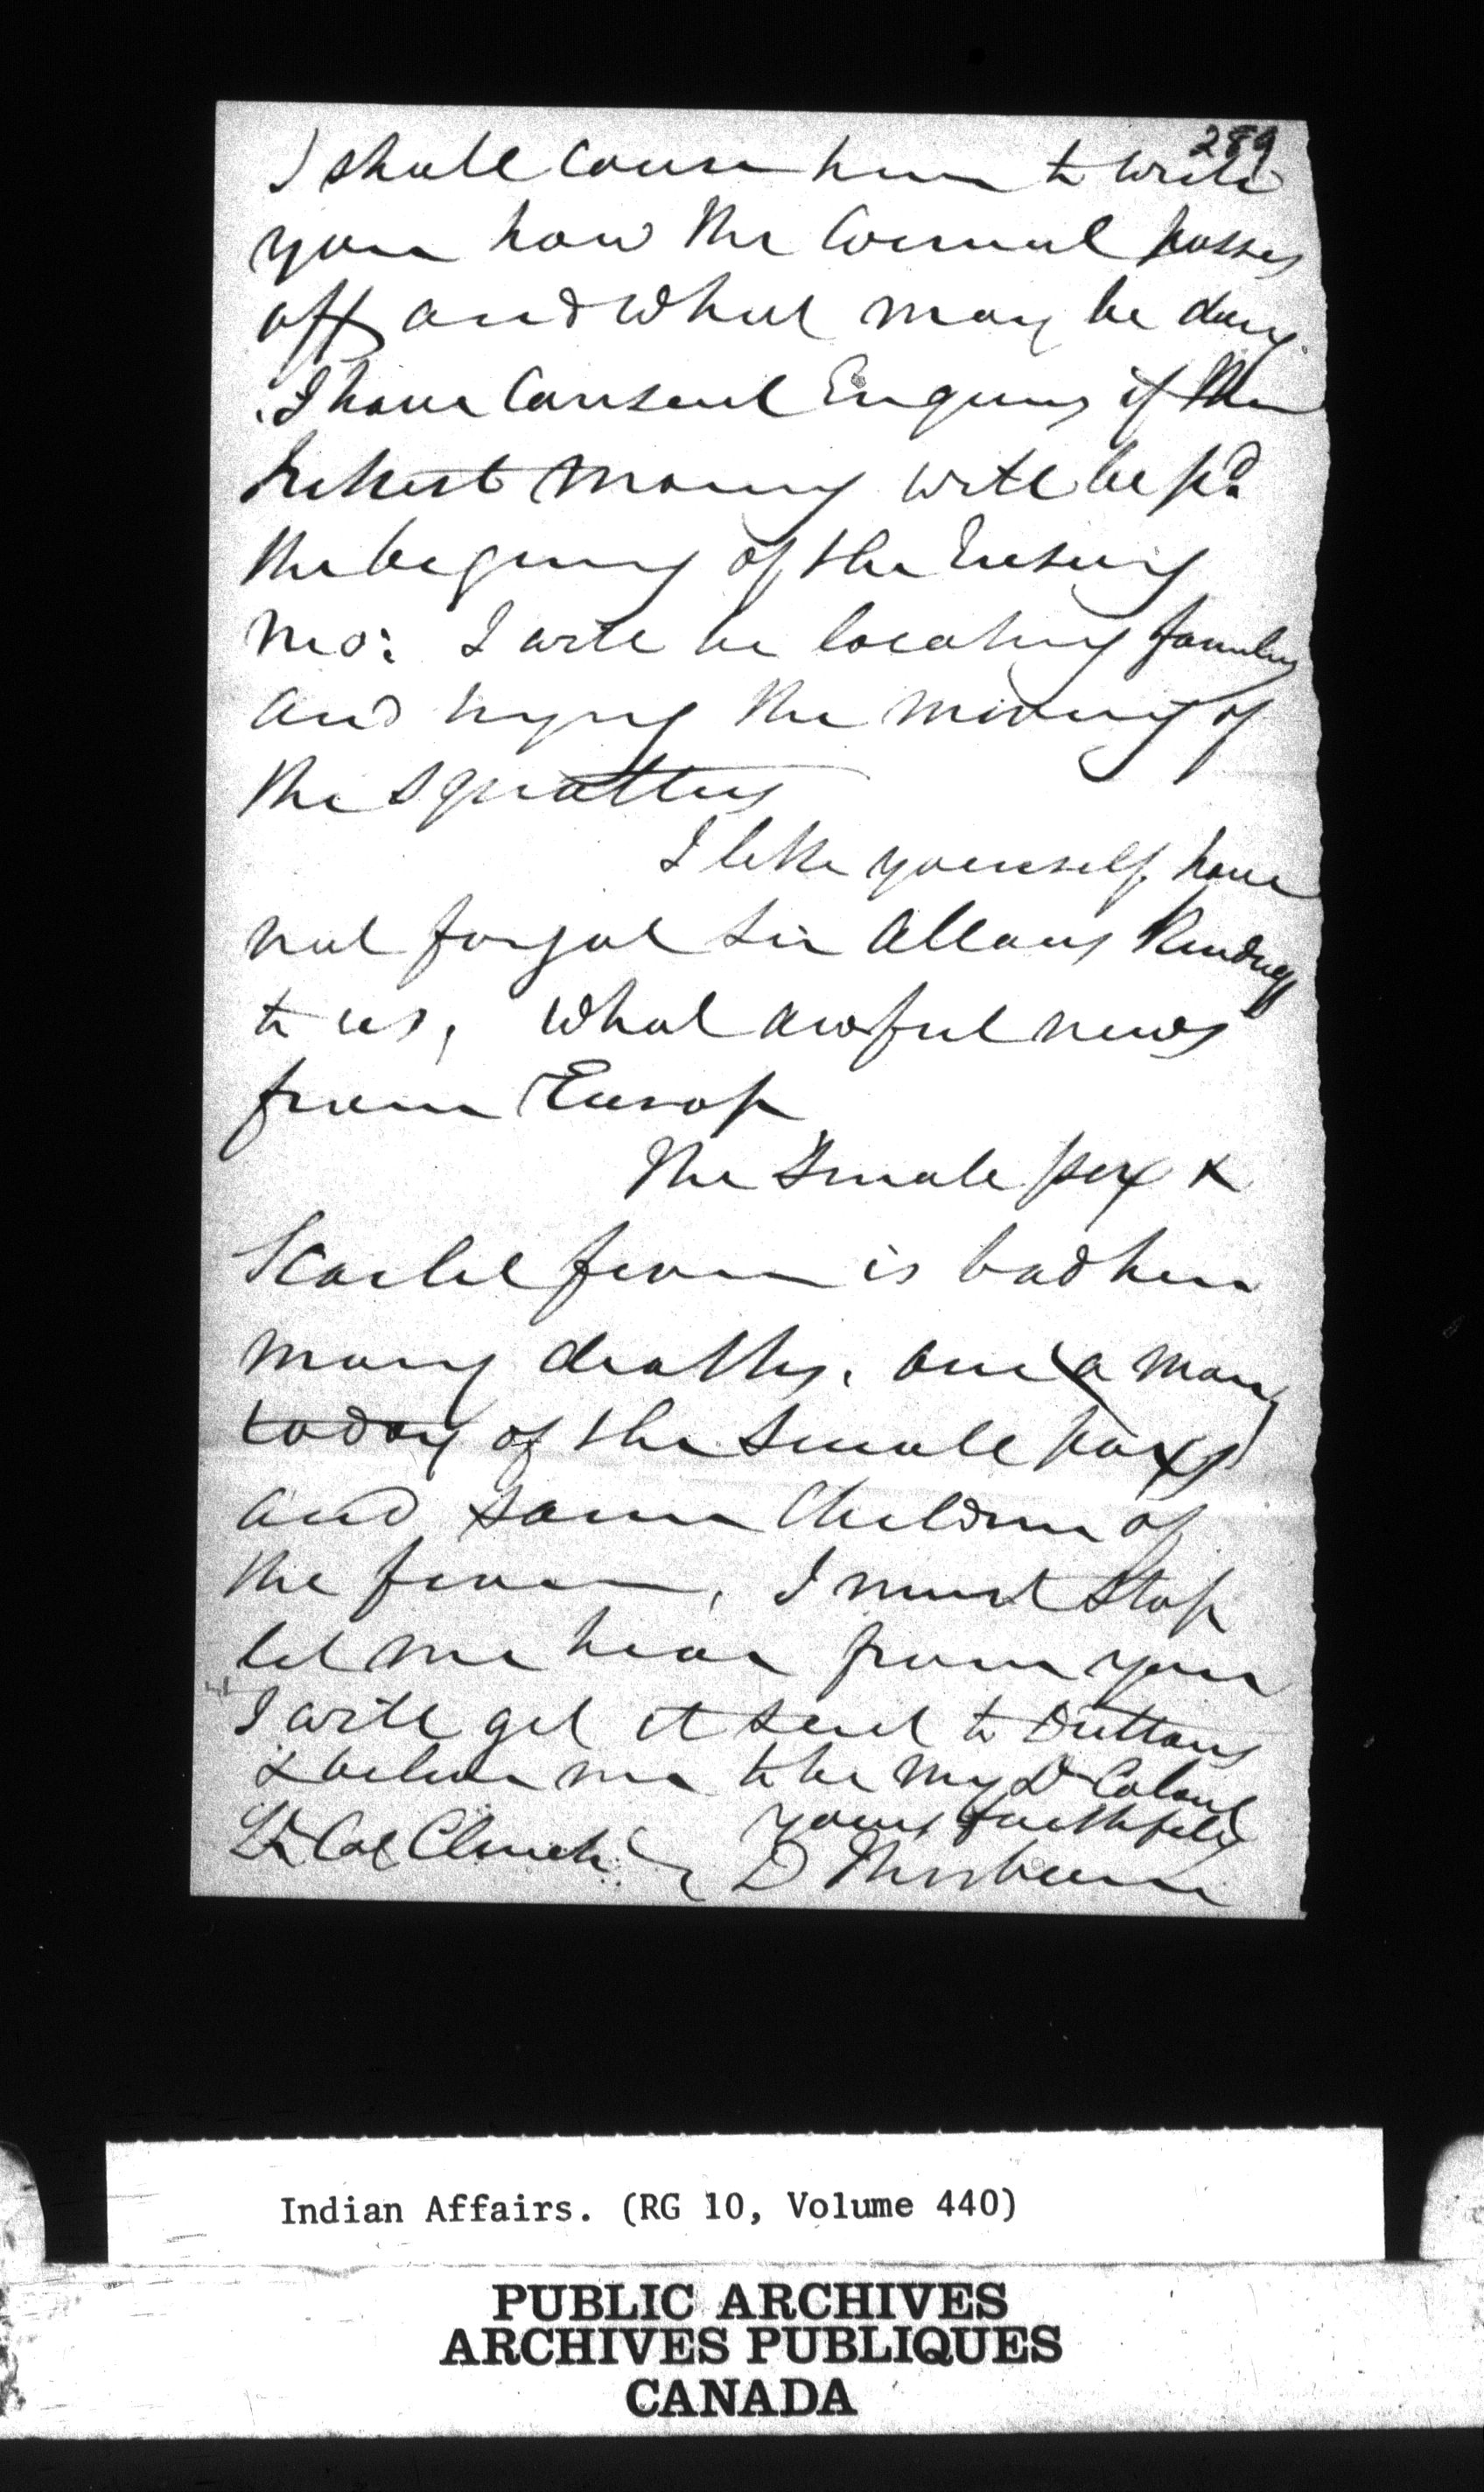 289
I shall cause him to write
you how the Council passes
off and what may be done.
I have caused Enquiry if the
money will be pd
the begining of the Ensuing
mo: I will be locating families
and trying the moving of
the squatters
I like yourself have
not forgot Sir Allans Kindness
to us, what awful news
from Europ
The Small pox &
Scarlet fever is bad here
many deaths. one a man
today of the Small pox
and some Children of
the fever, I must Stop
let me hear from you
I will get it sent to
& believe me to be my Dr Colonel
yours faithfully
Lt Col Clench D Thorburn
Indian Affairs. (RG 10, Volume 440)
PUBLIC ARCHIVES
ARCHIVES PUBLIQUES
CANADA